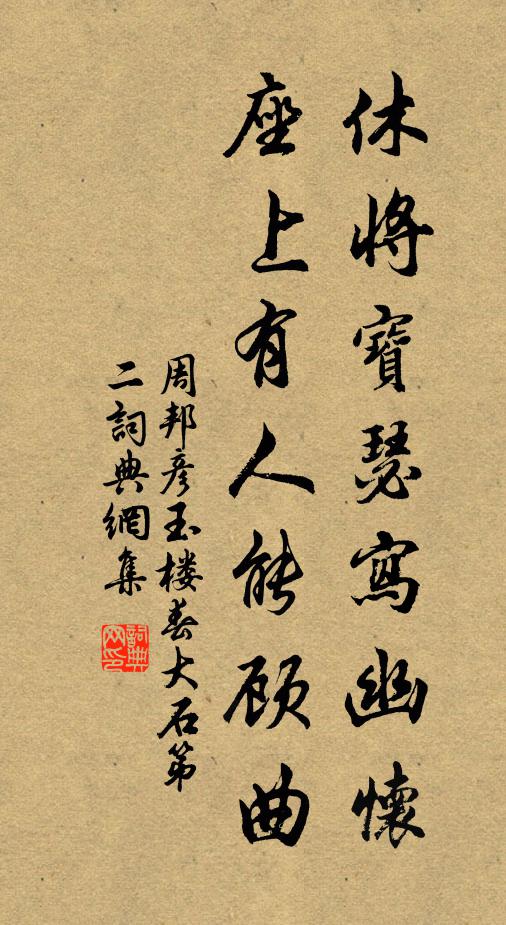 休將寶瑟寫幽懷
座上有人能顧曲
周邦彥玉楼春大石第
二詞典網集
詞典
网印